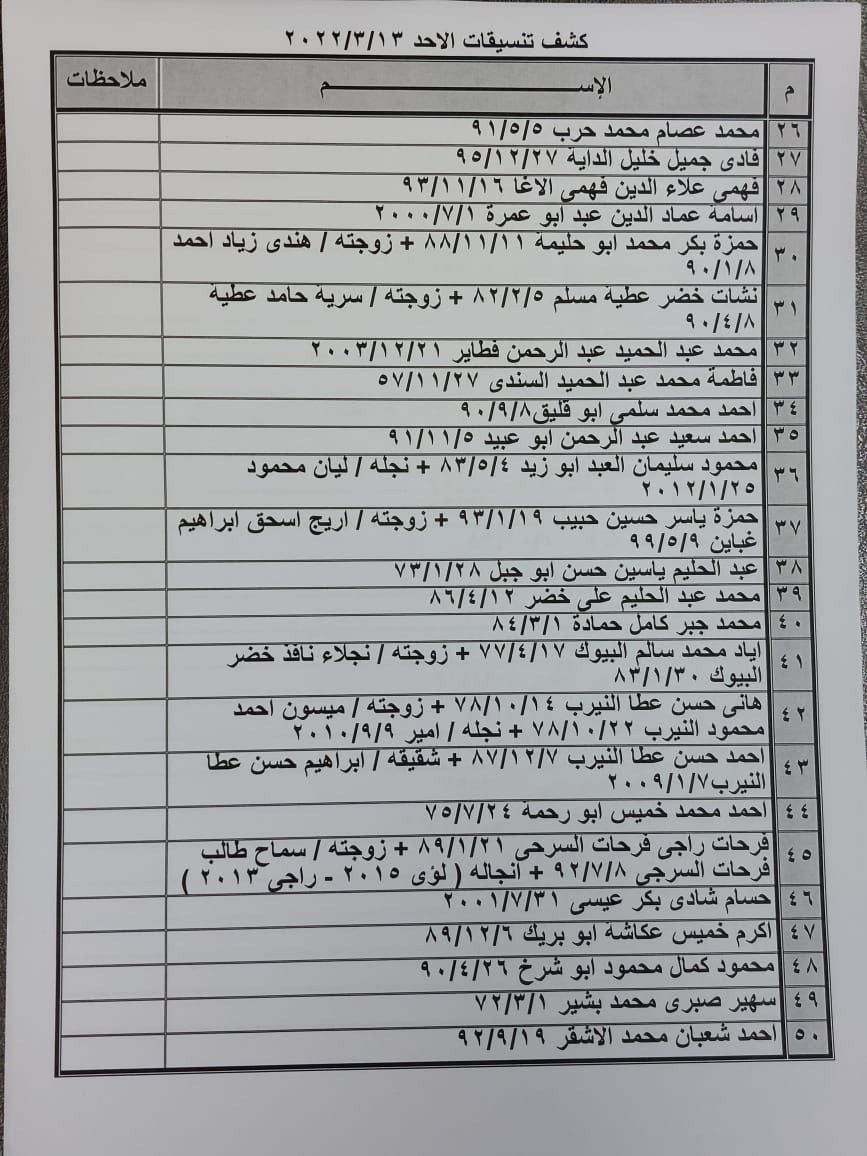 كشف تنسيقات الاحد ٢٠٢٢/٣/١٣
م الإســــــــــم ملاحظات
٢٦ محمد عصام محمد حرب ٩١/٥/٥
٢٧ فادى جميل خليل الداية ٩٥/١٢/٢٧
٢٨ فهمى علاء الدين فهمى الاغا ٩٣/١١/١٦
٢٩ اسامة عماد الدين عبد ابو عمرة ٢٠٠٠/٧/١
٣٠ حمزة بكر محمد ابو حليمة ٨٨/١١/١١ + زوجته / هندى زياد احمد
٩٠/١/٨
٣١ نشات خضر عطية مسلم ٨٢/٢/٥ + زوجته / سرية حامد عطية
٩٠/٤/٨
٣٢ محمد عبد الحميد عبد الرحمن فطاير ٢٠٠٣/١٢/٢١
٣٣ فاطمة محمد عبد الحميد السندى ٥٧/١١/٢٧
٣٤ احمد محمد سلمى ابو قليق٩٠/٩/٨
٣٥ احمد سعيد عبد الرحمن ابو عبيد ٩١/١١/٥
٣٦ محمود سليمان العبد ابو زيد ٨٣/٥/٤ + نجله / ليان محمود
٢٠١٢/١/٢٥
٣٧ حمزة ياسر حسين حبيب ٩٣/١/١٩ + زوجته / اريج اسحق ابراهيم
غباين ٩٩/٥/٩
٣٨ عبد الحليم ياسين حسن ابو جبل ٧٣/١/٢٨
٣٩ محمد عبد الحليم على خضر ٨٦/٤/١٢
٤٠ محمد جبر كامل حمادة ٨٤/٣/١
٤١ اياد محمد سالم البيوك ٧٧/٤/١٧ + زوجته / نجلاء نافذ خضر
البيوك ٨٣/١/٣٠
٤٢ هانى حسن عطا النيرب ٧٨/١٠/١٤ + زوجته / ميسون احمد
محمود النيرب ٧٨/١٠/٢٢ + نجله / امير ٢٠١٠/٩/٩
٤٣ احمد حسن عطا النيرب ٨٧/١٢/٧ + شقيقه / ابراهيم حسن عطا
النيرب٢٠٠٩/١/٧
٤٤ احمد محمد خميس ابو رحمة ٧٥/٧/٢٤
٤٥ فرحات راجى فرحات السرحى ٨٩/١/٢١ + زوجته / سماح طالب
فرحات السرجى ٩٢/٧/٨ + انجاله ( لؤى ٢٠١٥ - راجى ٢٠١٣ )
٤٦ حسام شادى بكر عيسى ٢٠٠١/٧/٣١
٤٧ اكرم خميس عكاشة ابو بريك ٨٩/١٢/٦
٤٨ محمود كمال محمود ابو شرخ ٩٠/٤/٢٦
٤٩ سهير صبرى محمد بشير ٧٢/٣/١
٥٠ احمد شعبان محمد الاشقر ٩٢/٩/١٩